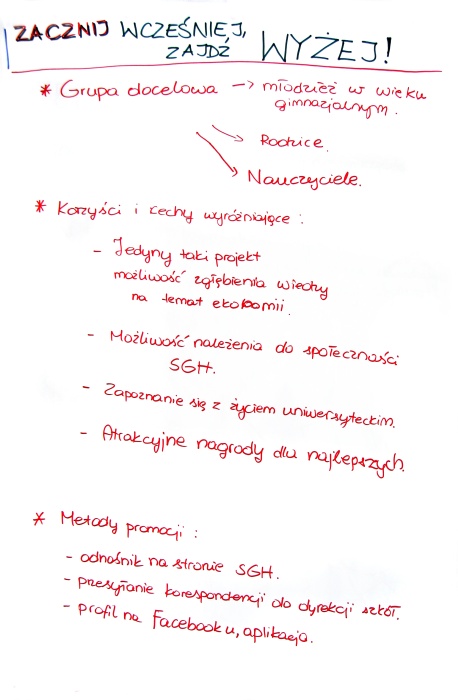 ZACZNIJ WCZEŚNIEJ,
ZAJDŹ WYŻEJ!
* Grupa docelowa -> młodzież w wieku
gimnazjalnym.
Rodzice.
Nauczyciele.
* Korzyści i cechy wyróżniające :
- Jedyny taki projekt
możliwość zgłębienia wiedzy
na temat ekonomii.
- Możliwość należenia do społeczności
SGH.
- Zapoznanie się z życiem uniwersyteckim.
- Atrakcyjne nagrody dla najlepszych.
* Metody promocji :
- odnośnik na stronie SGH.
- przesyłanie korespondencji do dyrekcji szkół.
- profil na Facebooku, aplikacja.